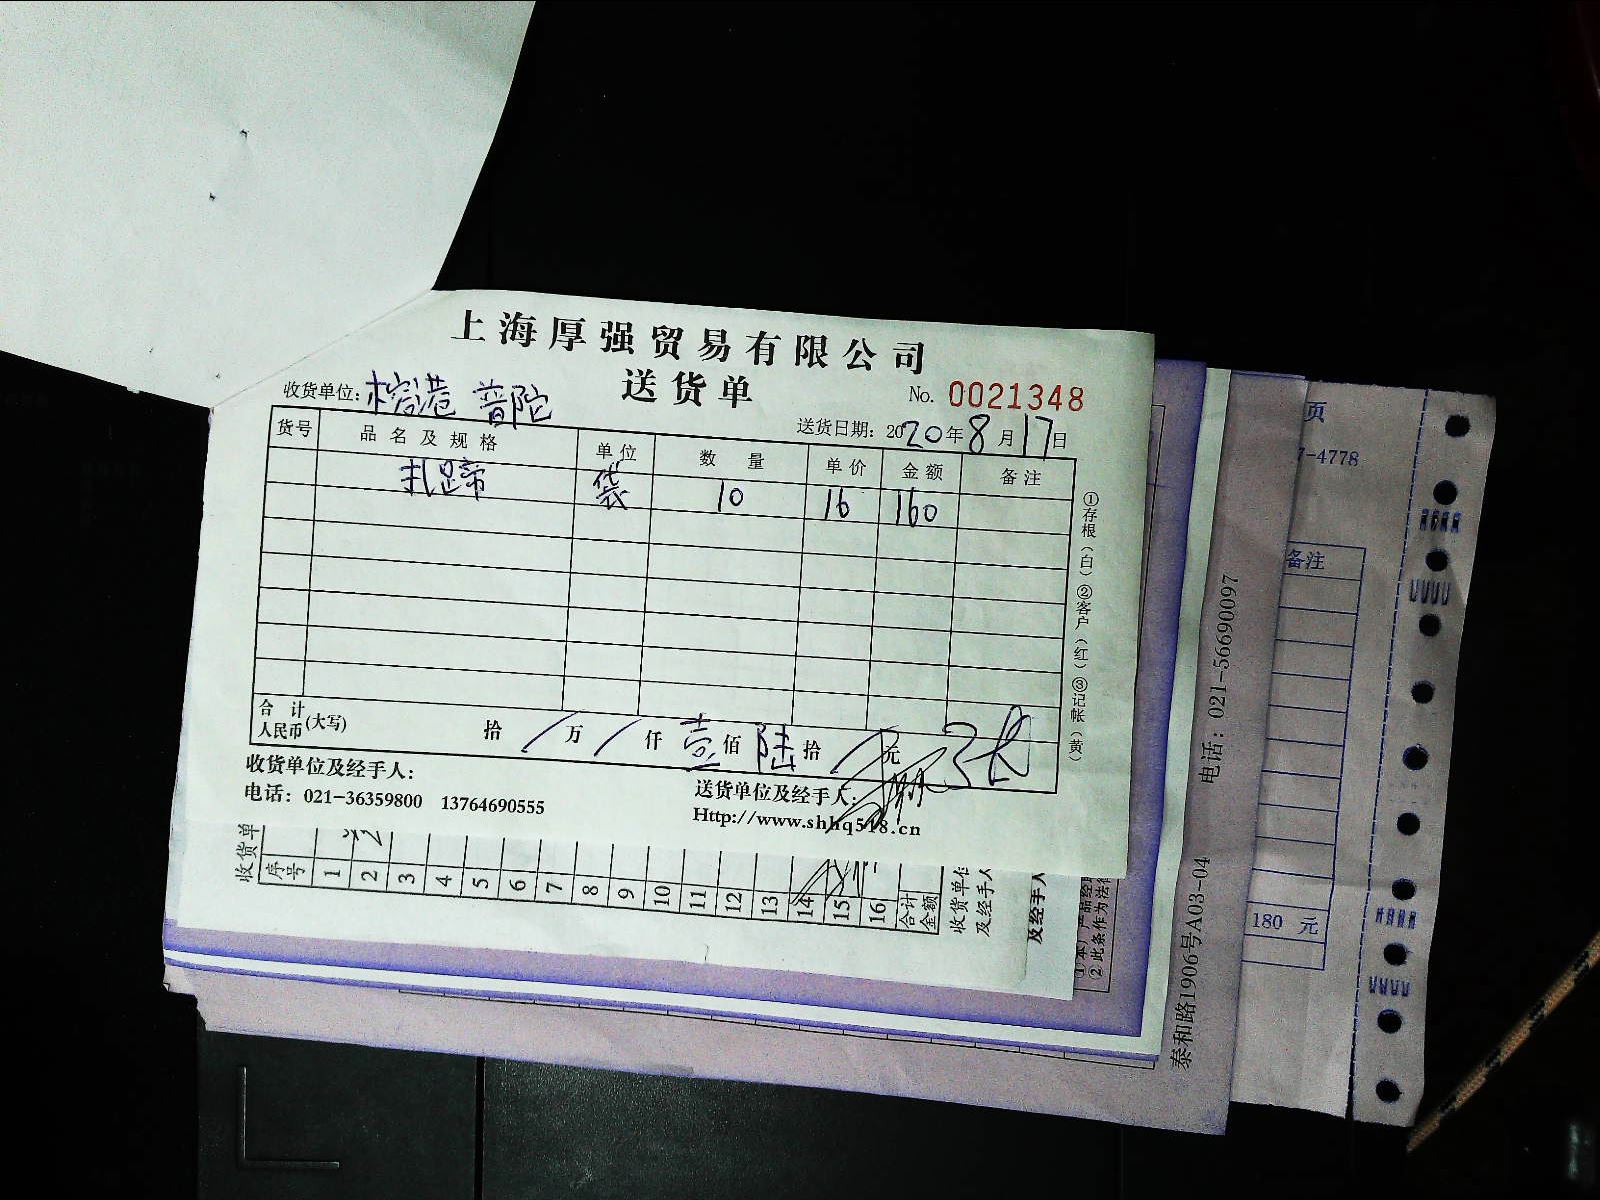 上海厚强贸易有限公司
送货单
No. 0021348
收货单位: 榕港 普陀
送货日期: 2020年8月17日
货号 品名及规格 单位 数量 单价 金额 备注
扎蹄 袋 10 16 160
合计人民币(大写) 拾/万/仟壹佰陆拾/元
收货单位及经手人:
送货单位及经手人:
电话: 021-36359800 13764690555
Http://www.shhq518.cn
①存根(白)②客户(红)③记帐(黄)
收货单
序号 1 2 3 4 5 6 7 8 9 10 11 12 13 14 15 16 合计金额
收货单位及经手人
及经手人
②此条作为法
泰和路1906号A03-04 电话: 021-56690097
页
7-4778
备注
180 元